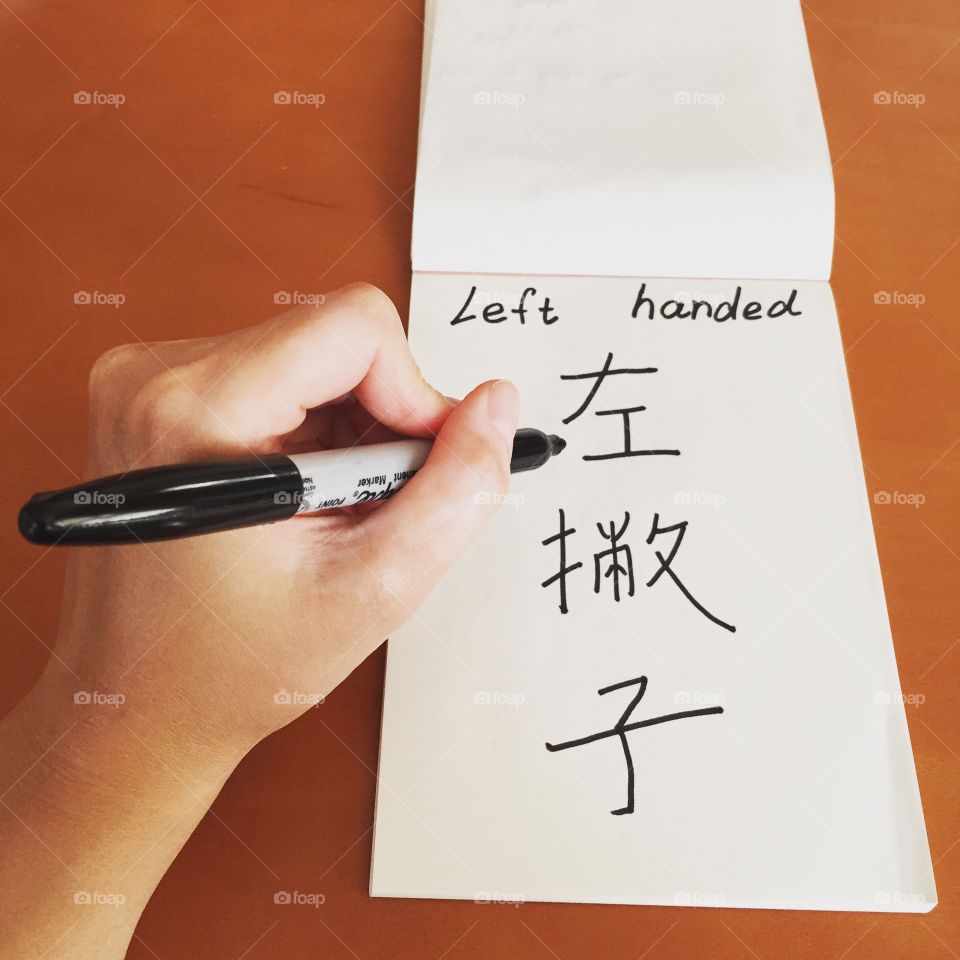 Left handed
左
撇
子
Marker
POINT
foap